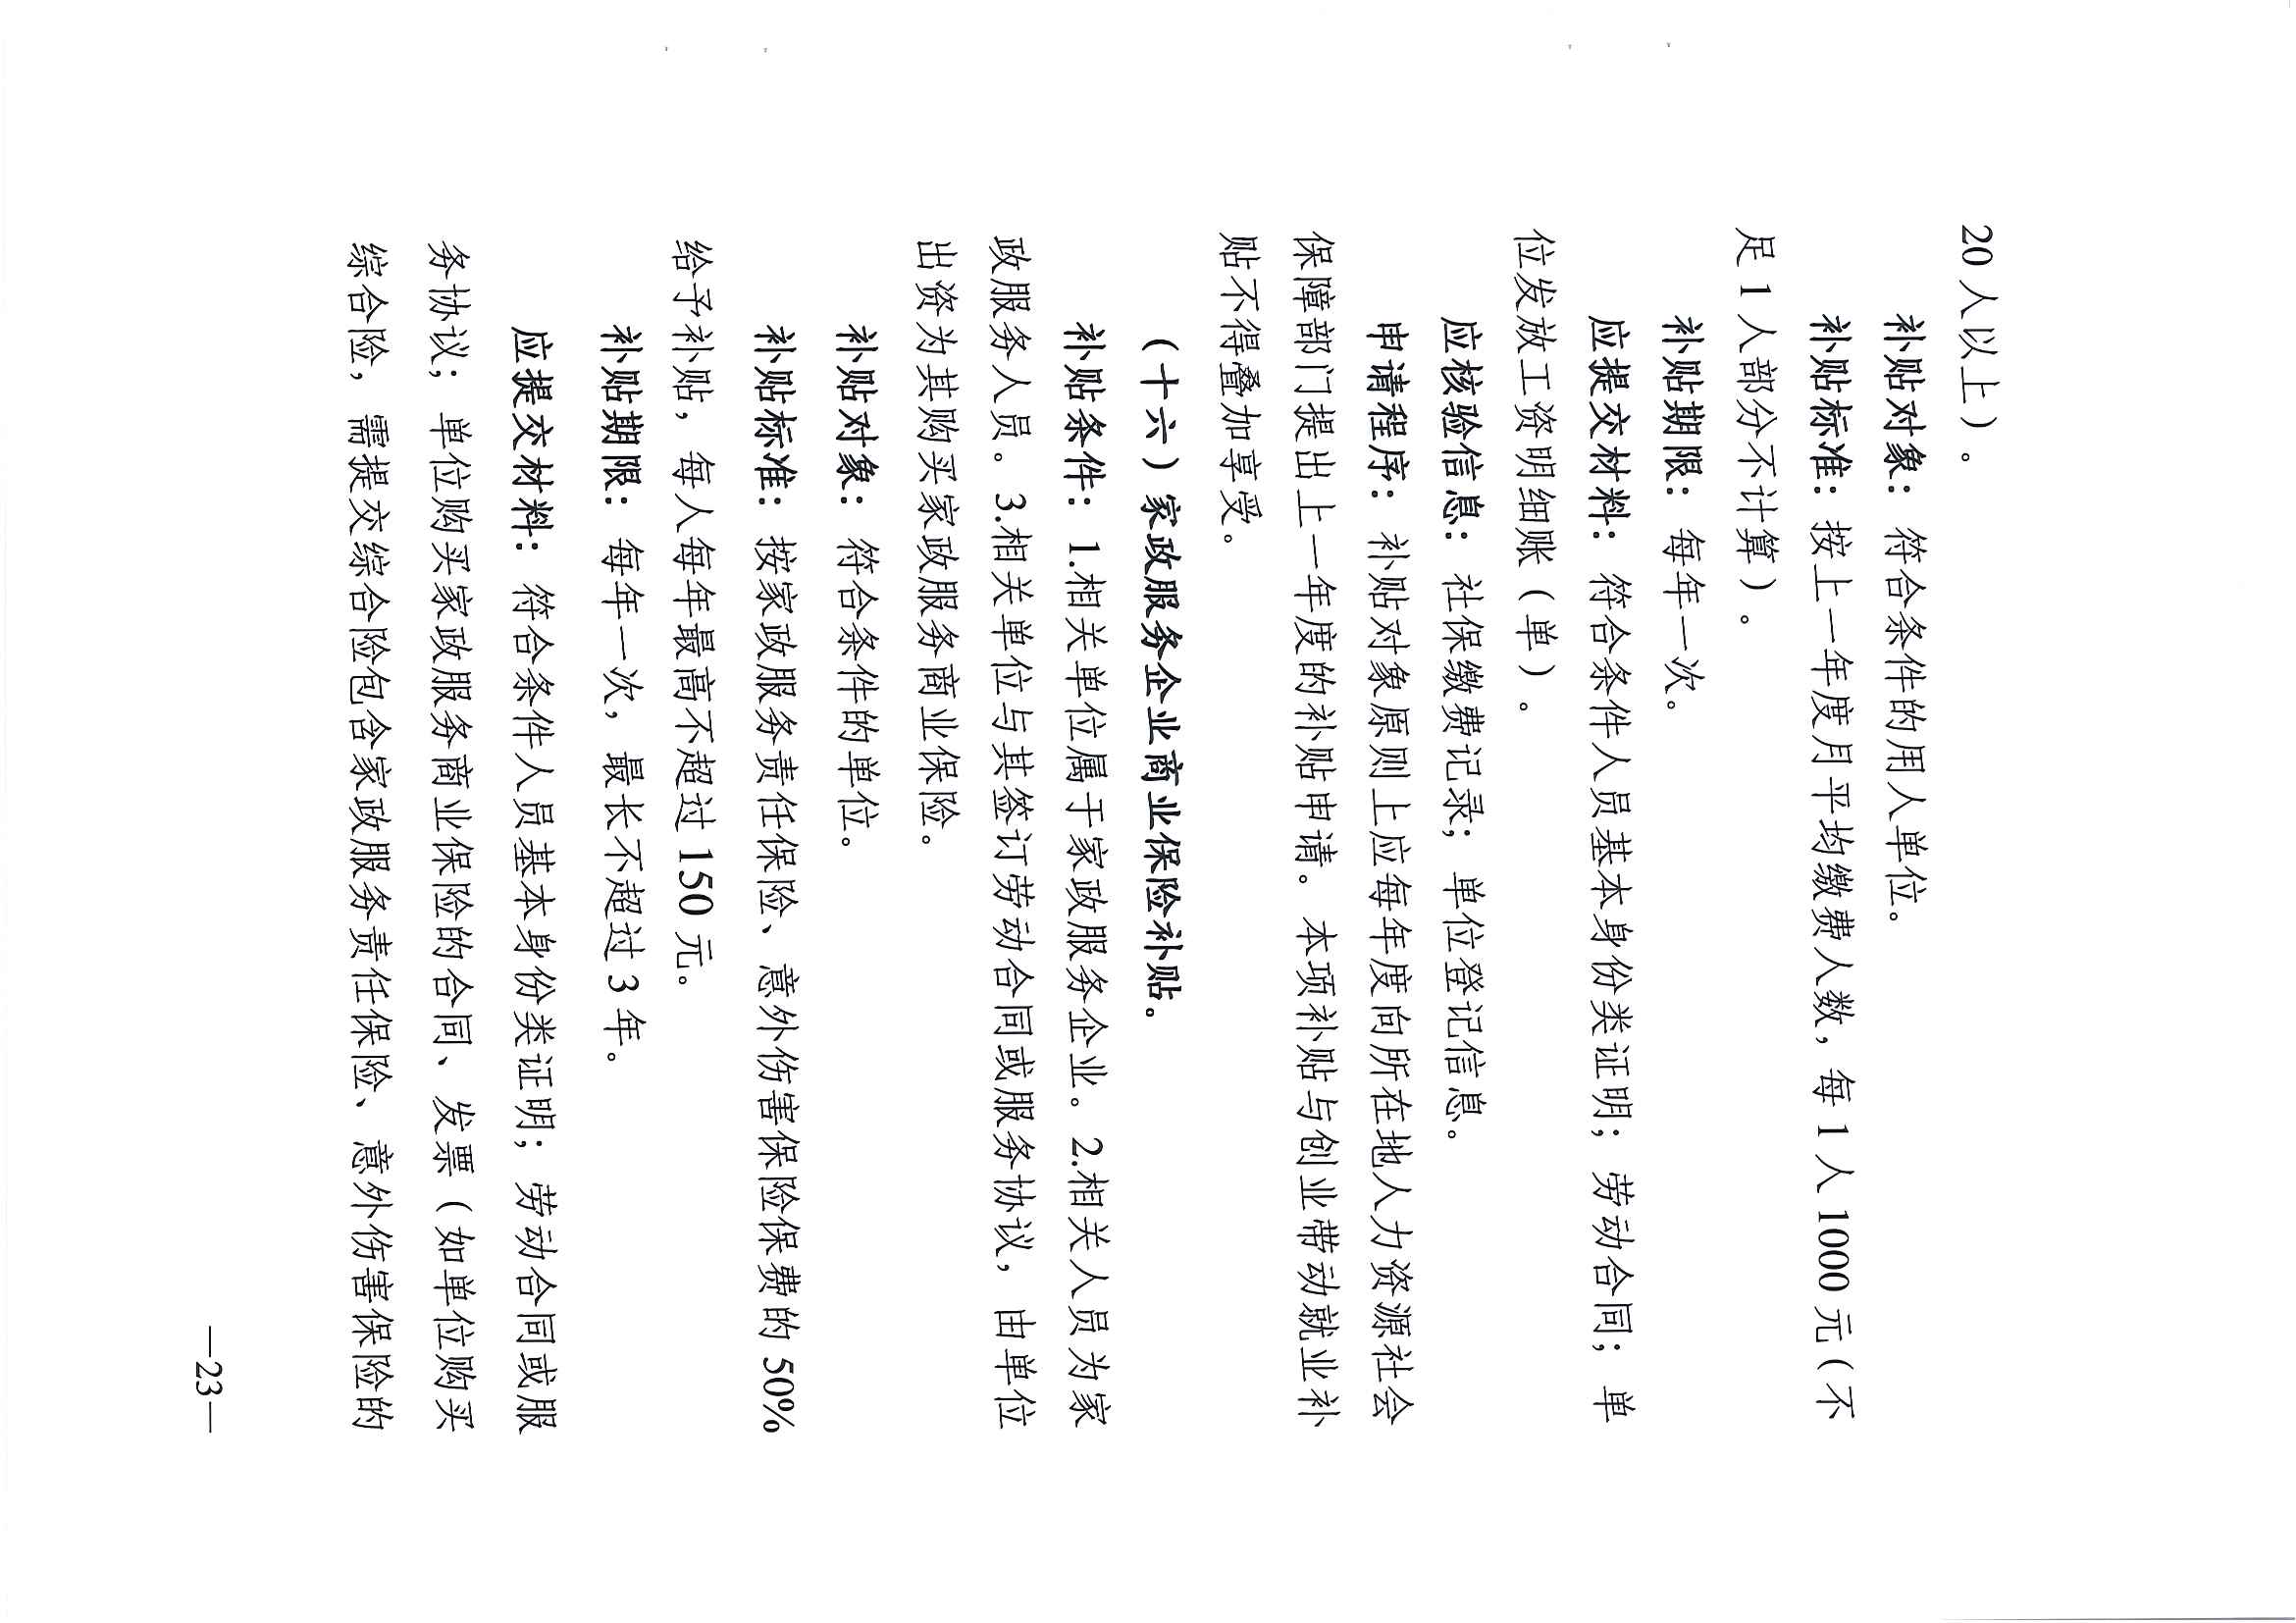 20 人以上）。
补贴对象：符合条件的用人单位。
补贴标准：按上一年度月平均缴费人数，每 1 人 1000 元（不
足 1 人部分不计算）。
补贴期限：每年一次。
应提交材料：符合条件人员基本身份类证明；劳动合同；单
位发放工资明细账（单）。
应核验信息：社保缴费记录；单位登记信息。
申请程序：补贴对象原则上应每年度向所在地人力资源社会
保障部门提出上一年度的补贴申请。本项补贴与创业带动就业补
贴不得叠加享受。
（十六）家政服务企业商业保险补贴。
补贴条件：1.相关单位属于家政服务企业。2.相关人员为家
政服务人员。3.相关单位与其签订劳动合同或服务协议，由单位
出资为其购买家政服务商业保险。
补贴对象：符合条件的单位。
补贴标准：按家政服务责任保险、意外伤害保险保费的 50%
给予补贴，每人每年最高不超过 150 元。
补贴期限：每年一次，最长不超过 3 年。
应提交材料：符合条件人员基本身份类证明；劳动合同或服
务协议；单位购买家政服务商业保险的合同、发票（如单位购买
综合险，需提交综合险包含家政服务责任保险、意外伤害保险的
—23—